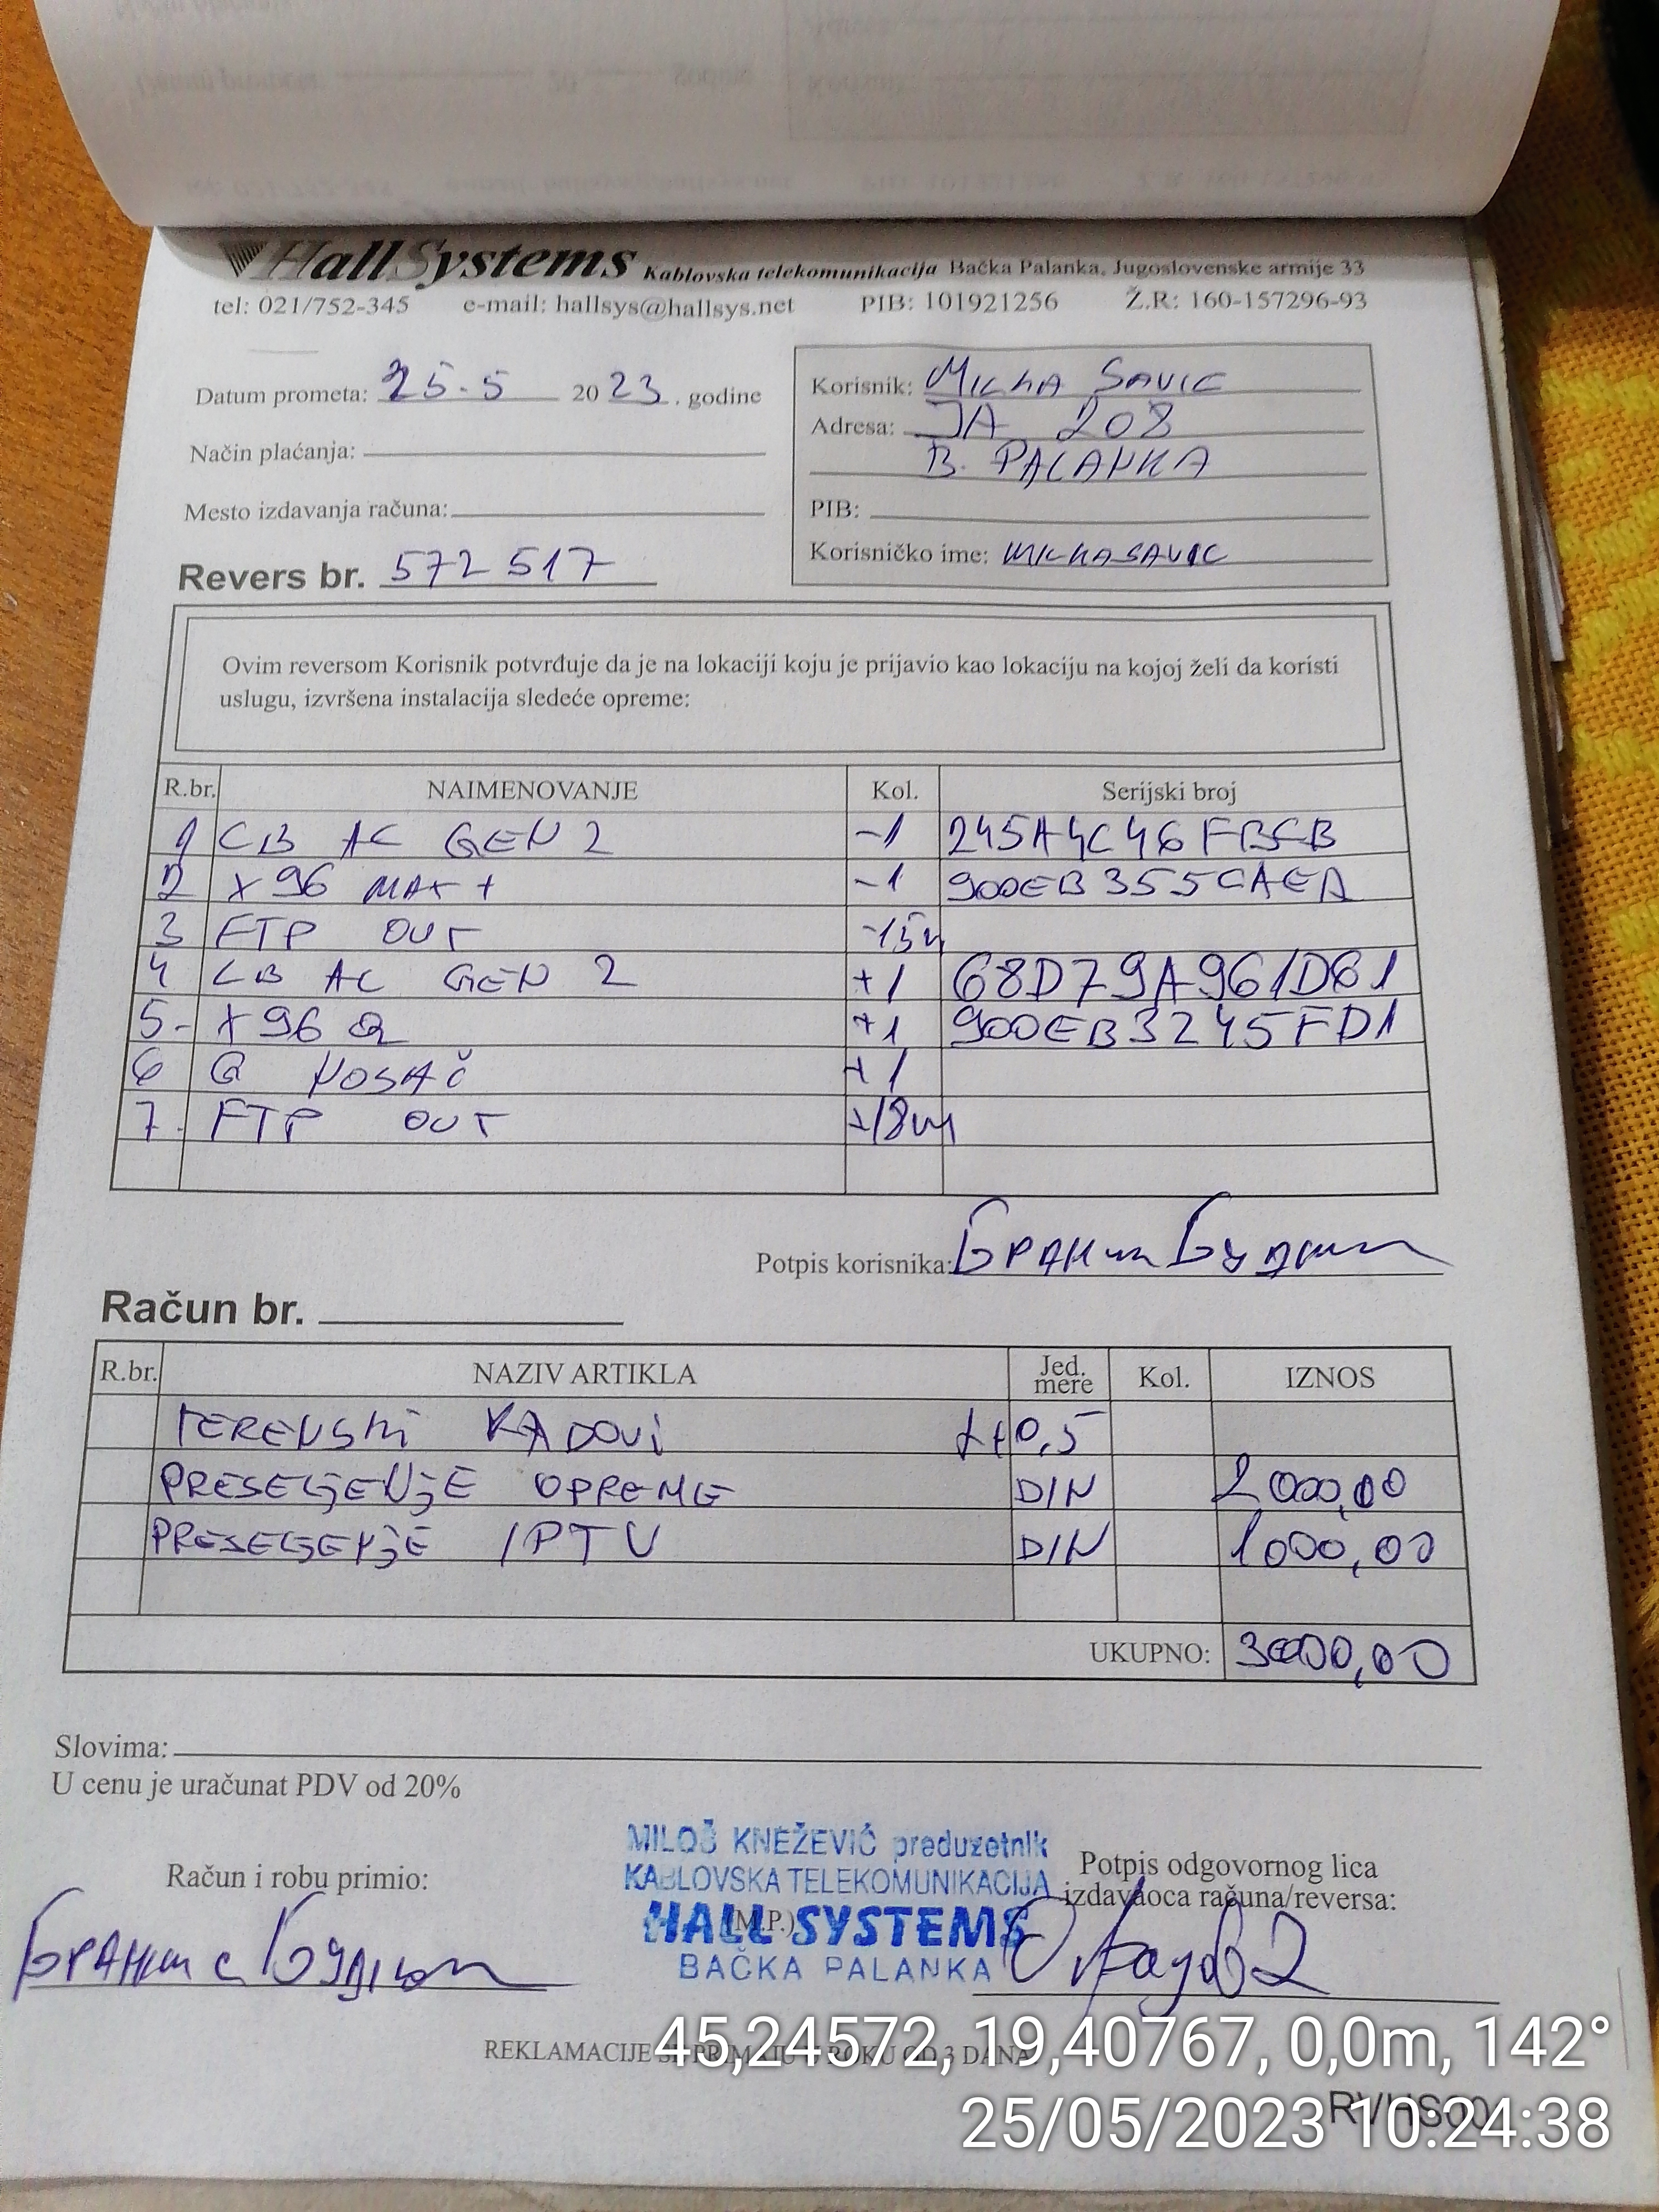 HallSystems Kablovska telekomunikacija Bačka Palanka, Jugoslovenske armije 33
tel: 021/752-345 e-mail: hallsys@hallsys.net PIB: 101921256 Ž.R: 160-157296-93
Datum prometa: 25.5 2023. godine
Način plaćanja:
Mesto izdavanja računa:
Revers br. 572517
Korisnik: MILKA SAVIC
Adresa: JA 208
B. PALANKA
PIB:
Korisničko ime: MILKASAVIC
Ovim reversom Korisnik potvrđuje da je na lokaciji koju je prijavio kao lokaciju na kojoj želi da koristi
uslugu, izvršena instalacija sledeće opreme:
R.br. NAIMENOVANJE Kol. Serijski broj
1 CB AC GEN 2 -1 245A4C46FBCB
2 X96 MAX+ -1 900EB355CAEA
3 FTP OUT -15m
4 CB AC GEN 2 +1 68D79A961D61
5- X96 Q +1 900EB3245FD1
6 Q NOSAČ +1
7. FTP OUT +18m
Potpis korisnika:
Račun br.
R.br. NAZIV ARTIKLA Jed. mere Kol. IZNOS
TERENSKI RADOVI 0,5
PRESELJENJE OPREME DIN 2000,00
PRESELJENJE IPTV DIN 1000,00
UKUPNO: 3000,00
Slovima:
U cenu je uračunat PDV od 20%
MILOŠ KNEŽEVIĆ preduzetnik
KABLOVSKA TELEKOMUNIKACIJA
(M.P.)
HALL SYSTEMS
BAČKA PALANKA
Račun i robu primio:
Potpis odgovornog lica
izdavaoca računa/reversa:
REKLAMACIJE SE PRIMAJU U ROKU OD 3 DANA
45,24572, 19,40767, 0,0m, 142°
25/05/2023 10:24:38